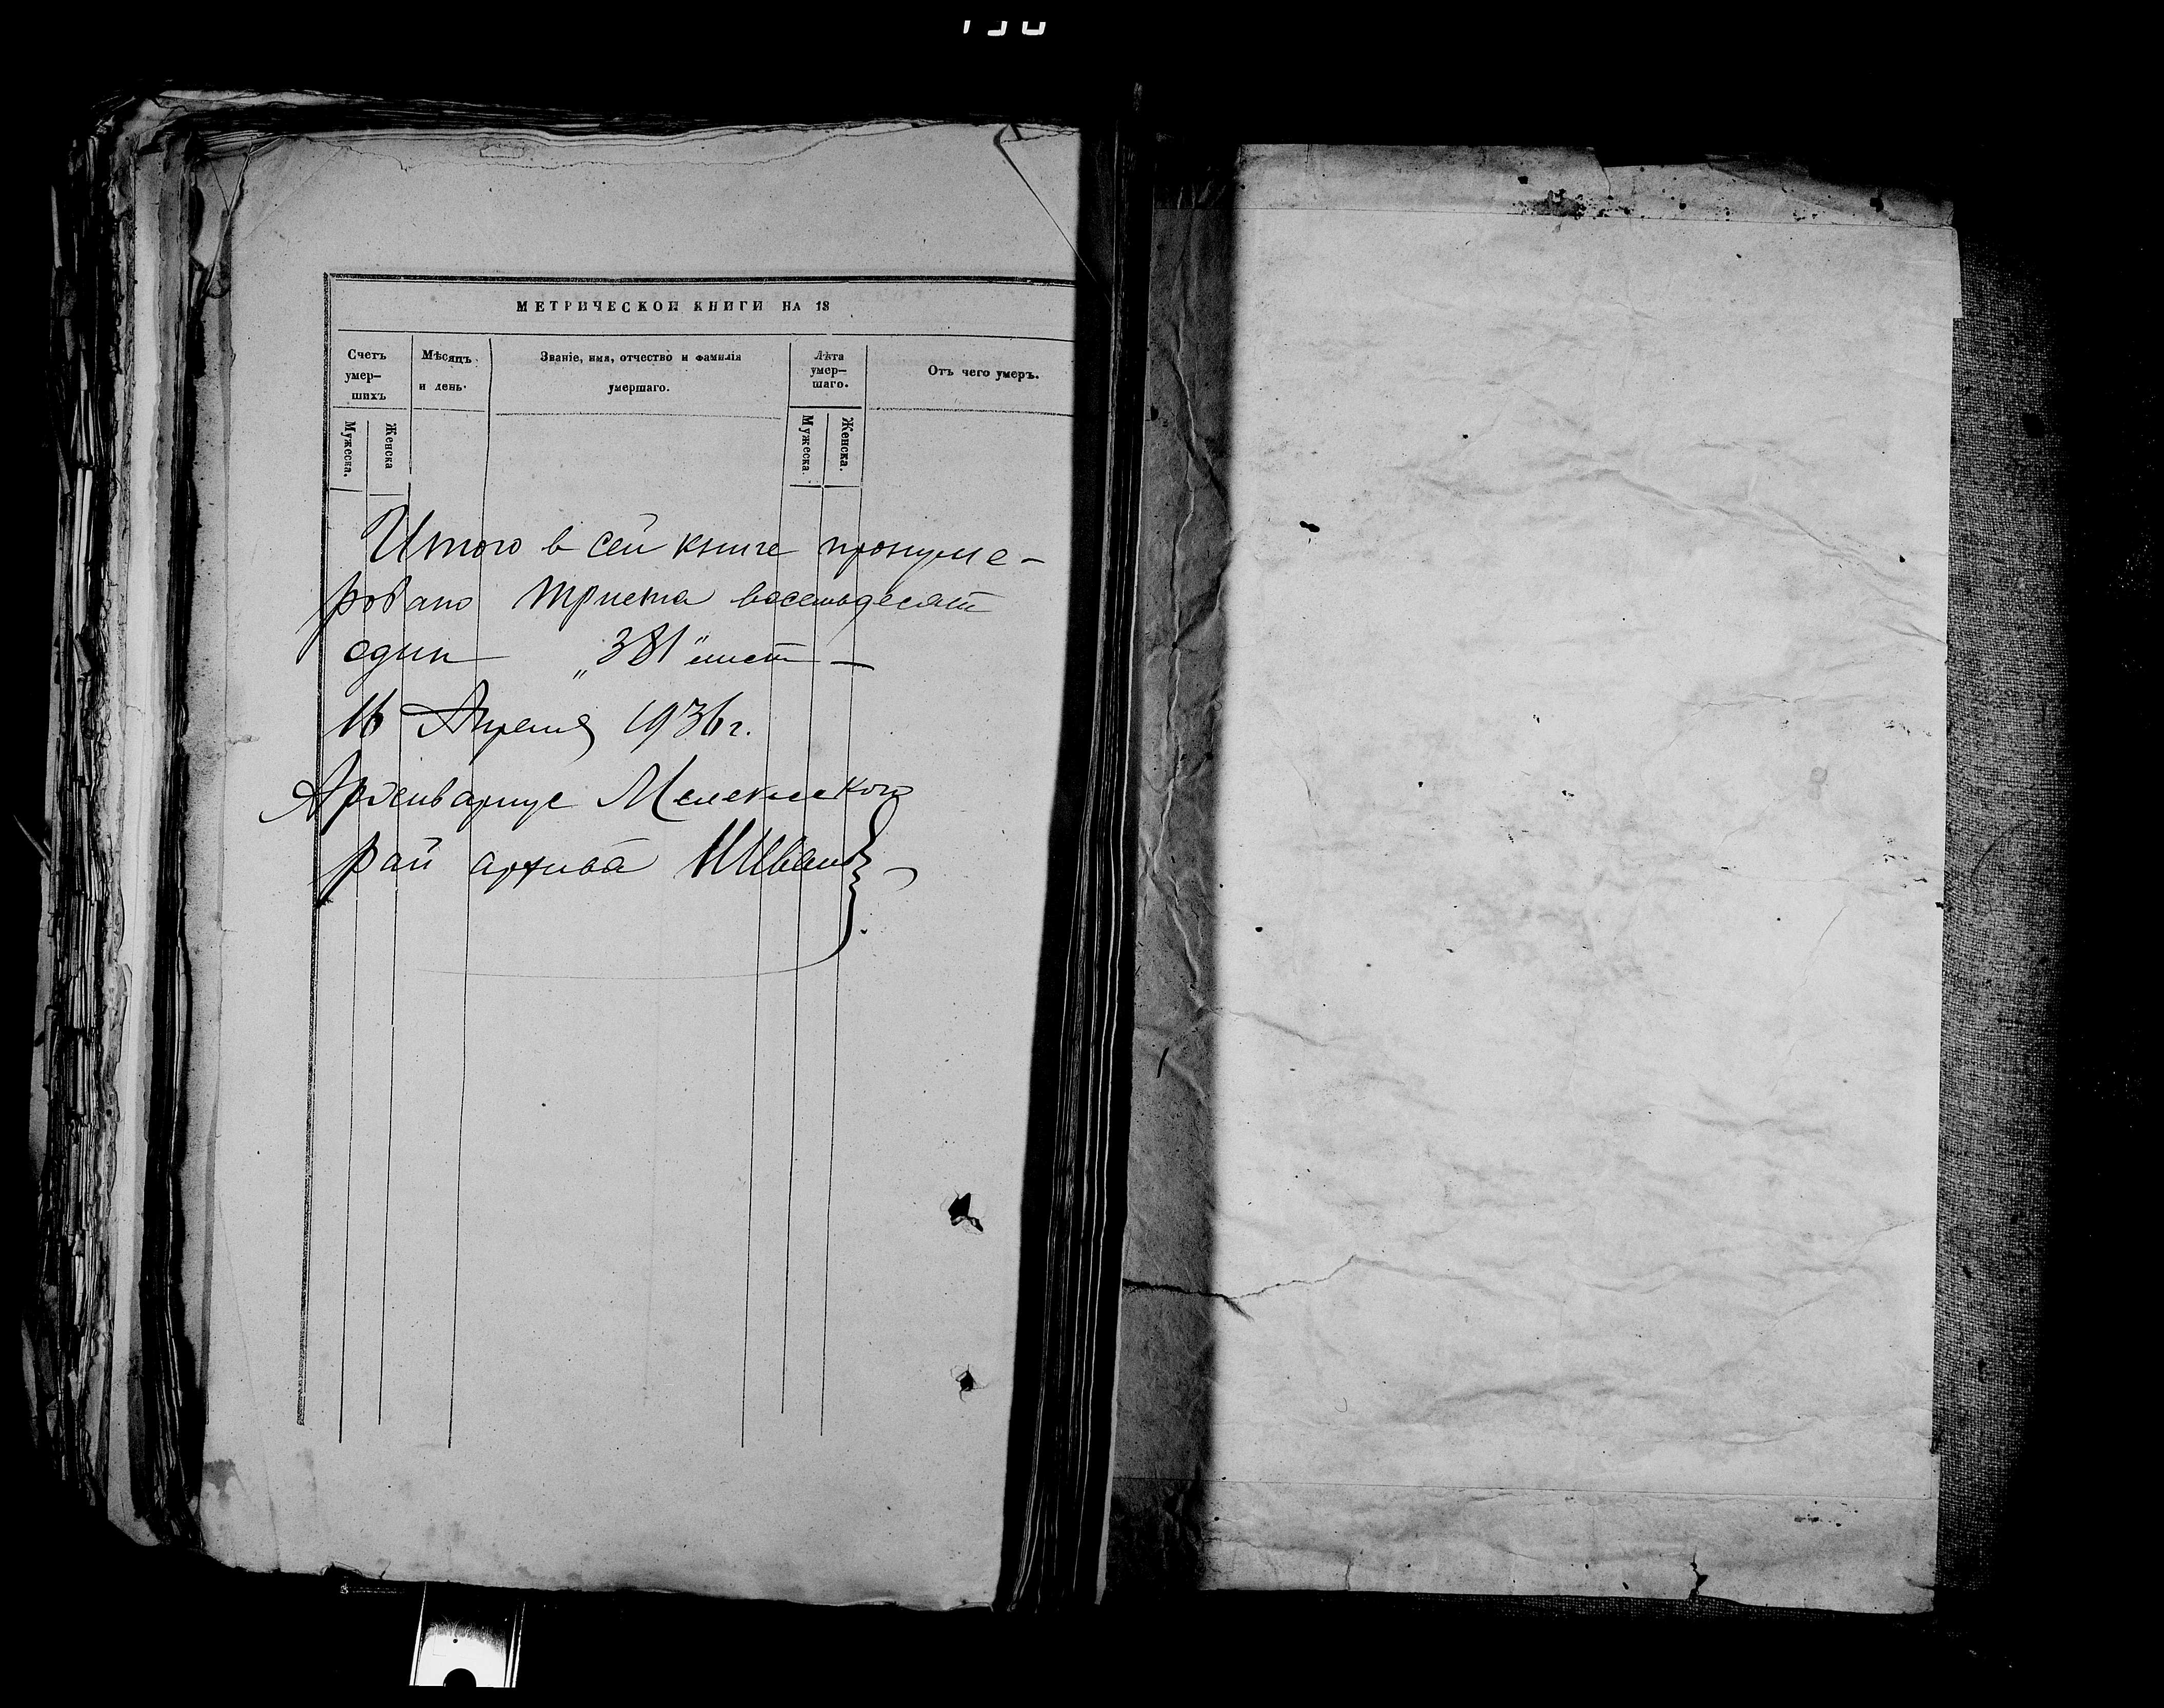 МЕТРИЧЕСКОЙ КНИГИ НА 18
Счетъ умер-шихъ
Мѣсяцъ и день.
Званіе, имя, отчество и фамилія умершаго.
Лѣта умер-шаго.
Отъ чего умеръ.
Мужеска.
Женска
Мужеска.
Женска.
Итого в сей книге пронуме-
ровано триста восемьдесят
один „381" лист —
16 Апреля 1936 г.
Архивариус Мелекесского
рай архива ИИванов